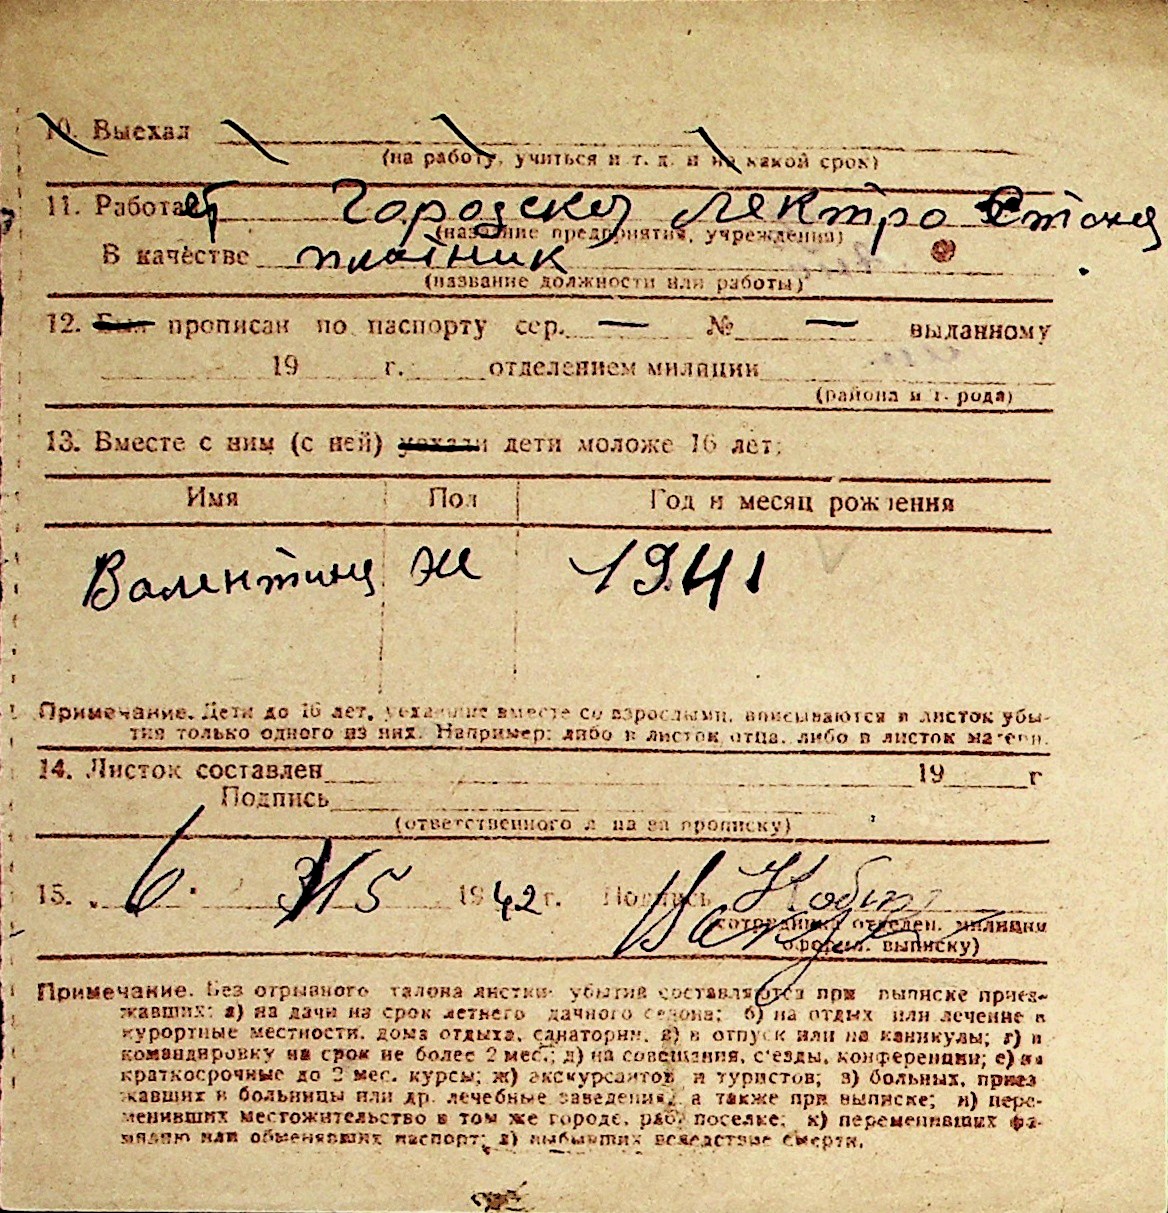 10. Выехал
(на работу, учиться и т. д. и на какой срок)
11. Работает Городской лектро Станц
(название предприятия, учреждения)
В качестве плотник
(название должности или работы)
12. Был прописан по паспорту сер. — № — выданному
19 г. отделением милиции
(района и города)
13. Вместе с ним (с ней) уехали дети моложе 16 лет:
Имя Пол Год и месяц рождения
Валентина Ж 1941
Примечание. Дети до 16 лет, уехавшие вместе со взрослыми, вписываются в листок убы-
тия только одного из них. Например: либо в листок отца, либо в листок матери.
14. Листок составлен 19 г
Подпись
(ответственного лица за прописку)
15. 6. 1942 г. Подпись
сотрудника отделен. милиции
оформл. выписку)
Примечание. Без отрывного талона листки убытия составляются при выписке приез-
жавших: а) на дачи на срок летнего дачного сезона; б) на отдых или лечение в
курортные местности, дома отдыха, санатории, в) в отпуск или на каникулы; г) в
командировку на срок не более 2 мес.; д) на совещания, съезды, конференции; е) на
краткосрочные до 2 мес. курсы; ж) экскурсантов и туристов; з) больных, приез
жавших в больницы или др. лечебные заведения, а также при выписке; и) пере-
менивших местожительство в том же городе, раб. поселке; к) переменивших фа-
милию или обменявших паспорт; л) выбывших вследствие смерти.